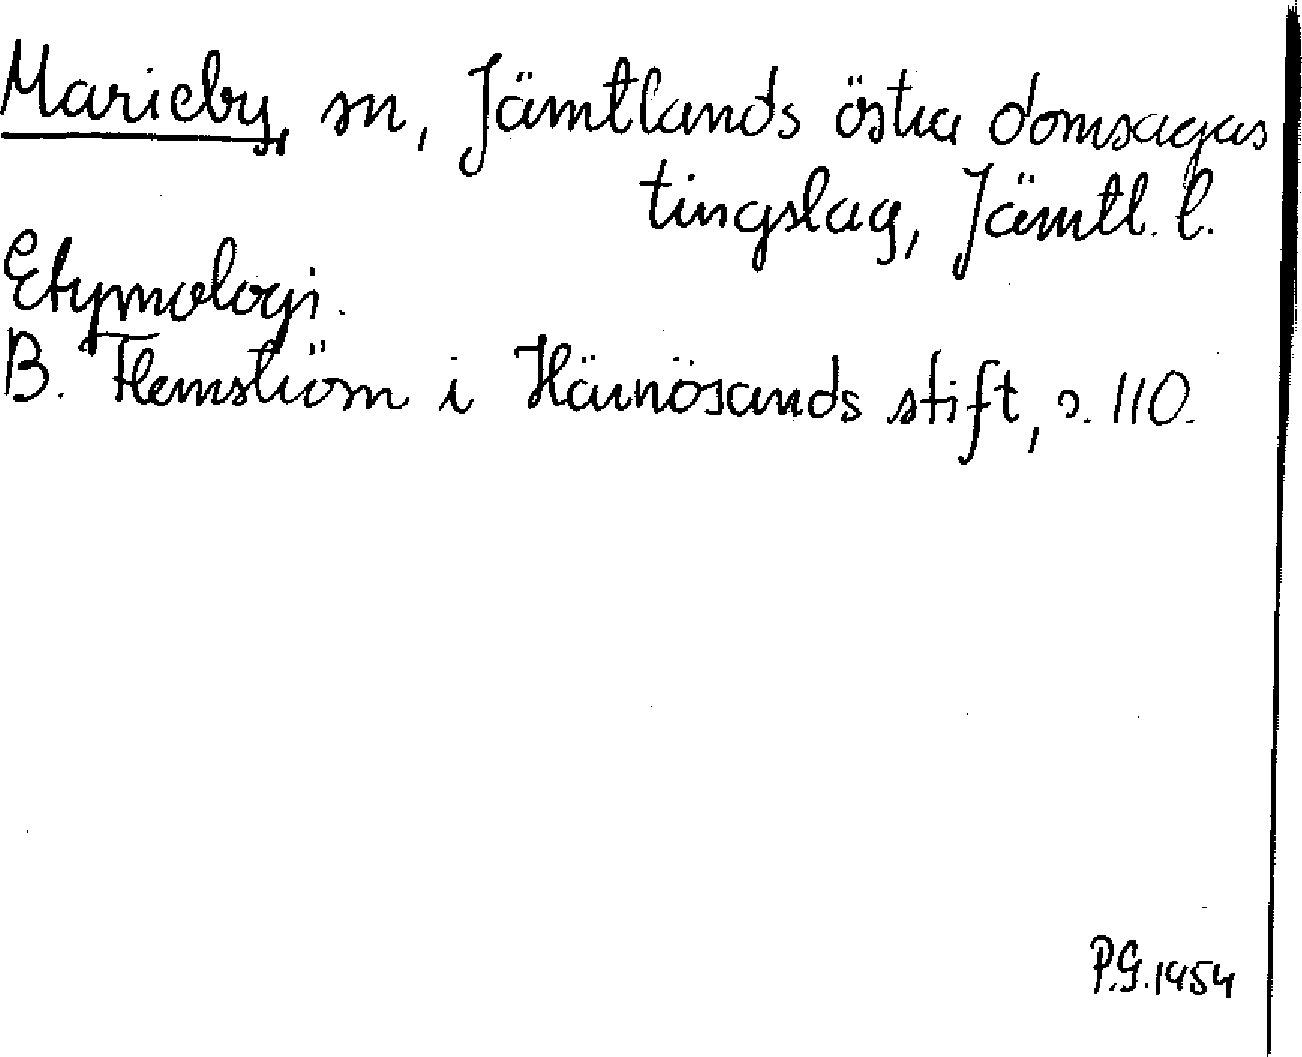 Marieby, sn, Jämtlands östra domsagas
tingslag, Jämtl. l.
Etymologi.
B. Flemström i Härnösands stift, s. 110.
P.G. 1954